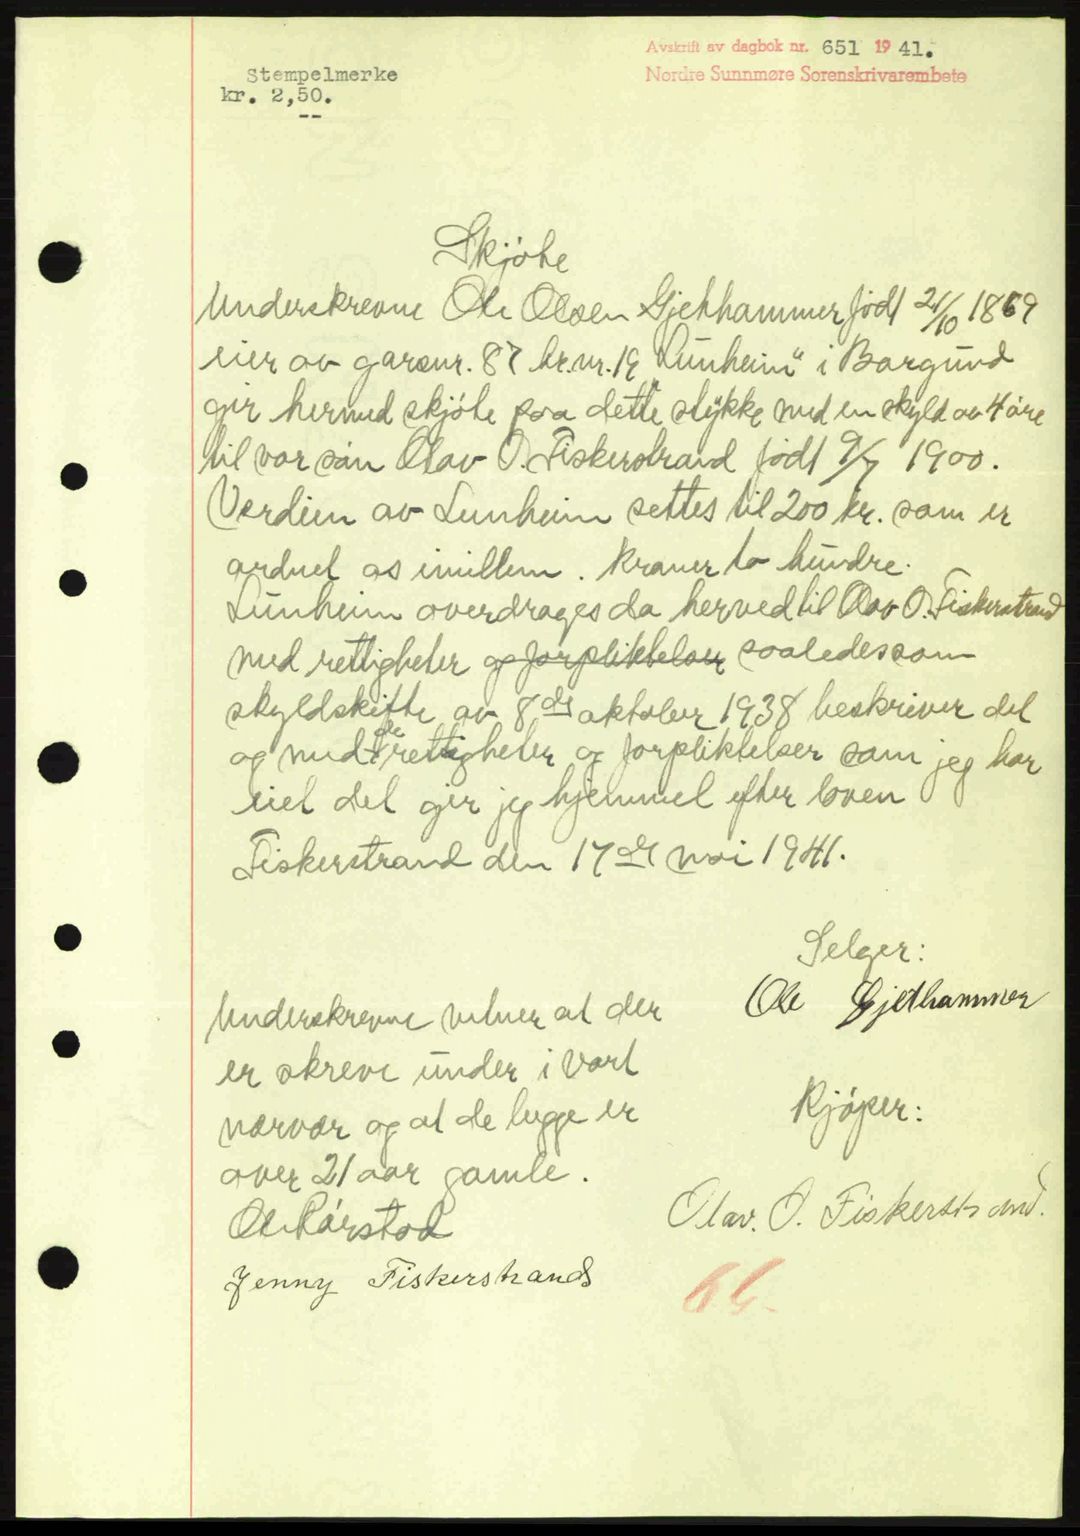 Avskrift av dagbok nr. 651 1941.
Nordre Sunnmøre Sorenskrivarembete
Stempelmerke
kr. 2,50.
--
Skjöte
Underskrevne Ole Olsen Gjethammer född 21/10 1869
eier av garsnr. 87 br.nr. 19 "Lunheim" i Borgund
gir hermed skjöte paa dette stykke med en skyld av 4 öre
til vor sön Olav O. Fiskerstrand född 9/7 1900.
Verdien av Lunheim settes til 200 kr. som er
ordnet os imillem. Kroner to hundre.
Lunheim overdrages da herved til Olav O. Fiskerstrand
med rettigheter og forpliktelser saaledes som
skyldskifte av 8de oktober 1938 beskriver det
og med de rettigheter og forpliktelser som jeg har
eiet det gir jeg hjemmel efter loven
Fiskerstrand den 17de mai 1941.
Selger:
Ole Gjethammer
Underskrevne vitner at der
er skreve under i vort
nærvær og at de begge er
over 21 aar gamle.
Kjöper:
Olav. O. Fiskerstrand.
Ole Rörstad
Jenny Fiskerstrand